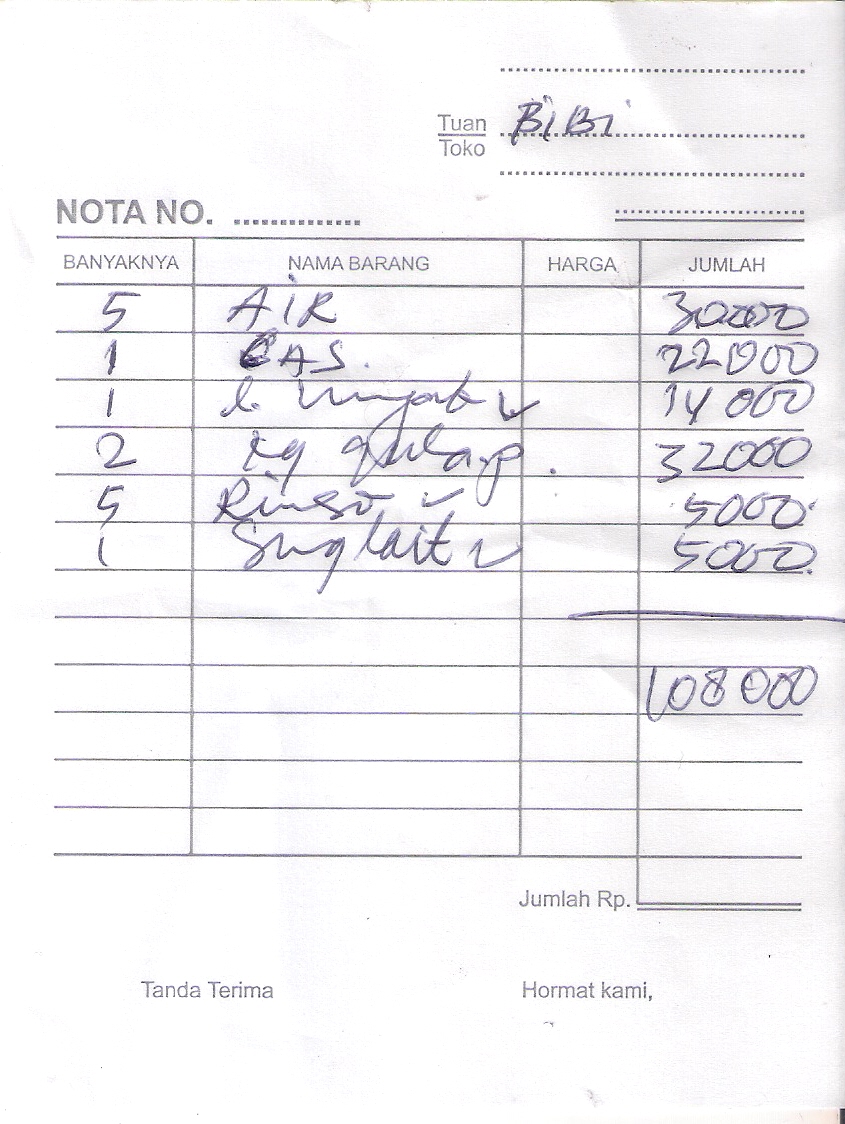 Tuan BiBi
Toko
NOTA NO.
BANYAKNYA NAMA BARANG HARGA JUMLAH
5 AiR 30000
1 GAS. 22000
1 l. minyak 14 000
2 kg gula.p. 32000
5 Rinso 5000
1 Sunglait 5000.
108 000
Jumlah Rp.
Tanda Terima Hormat kami,